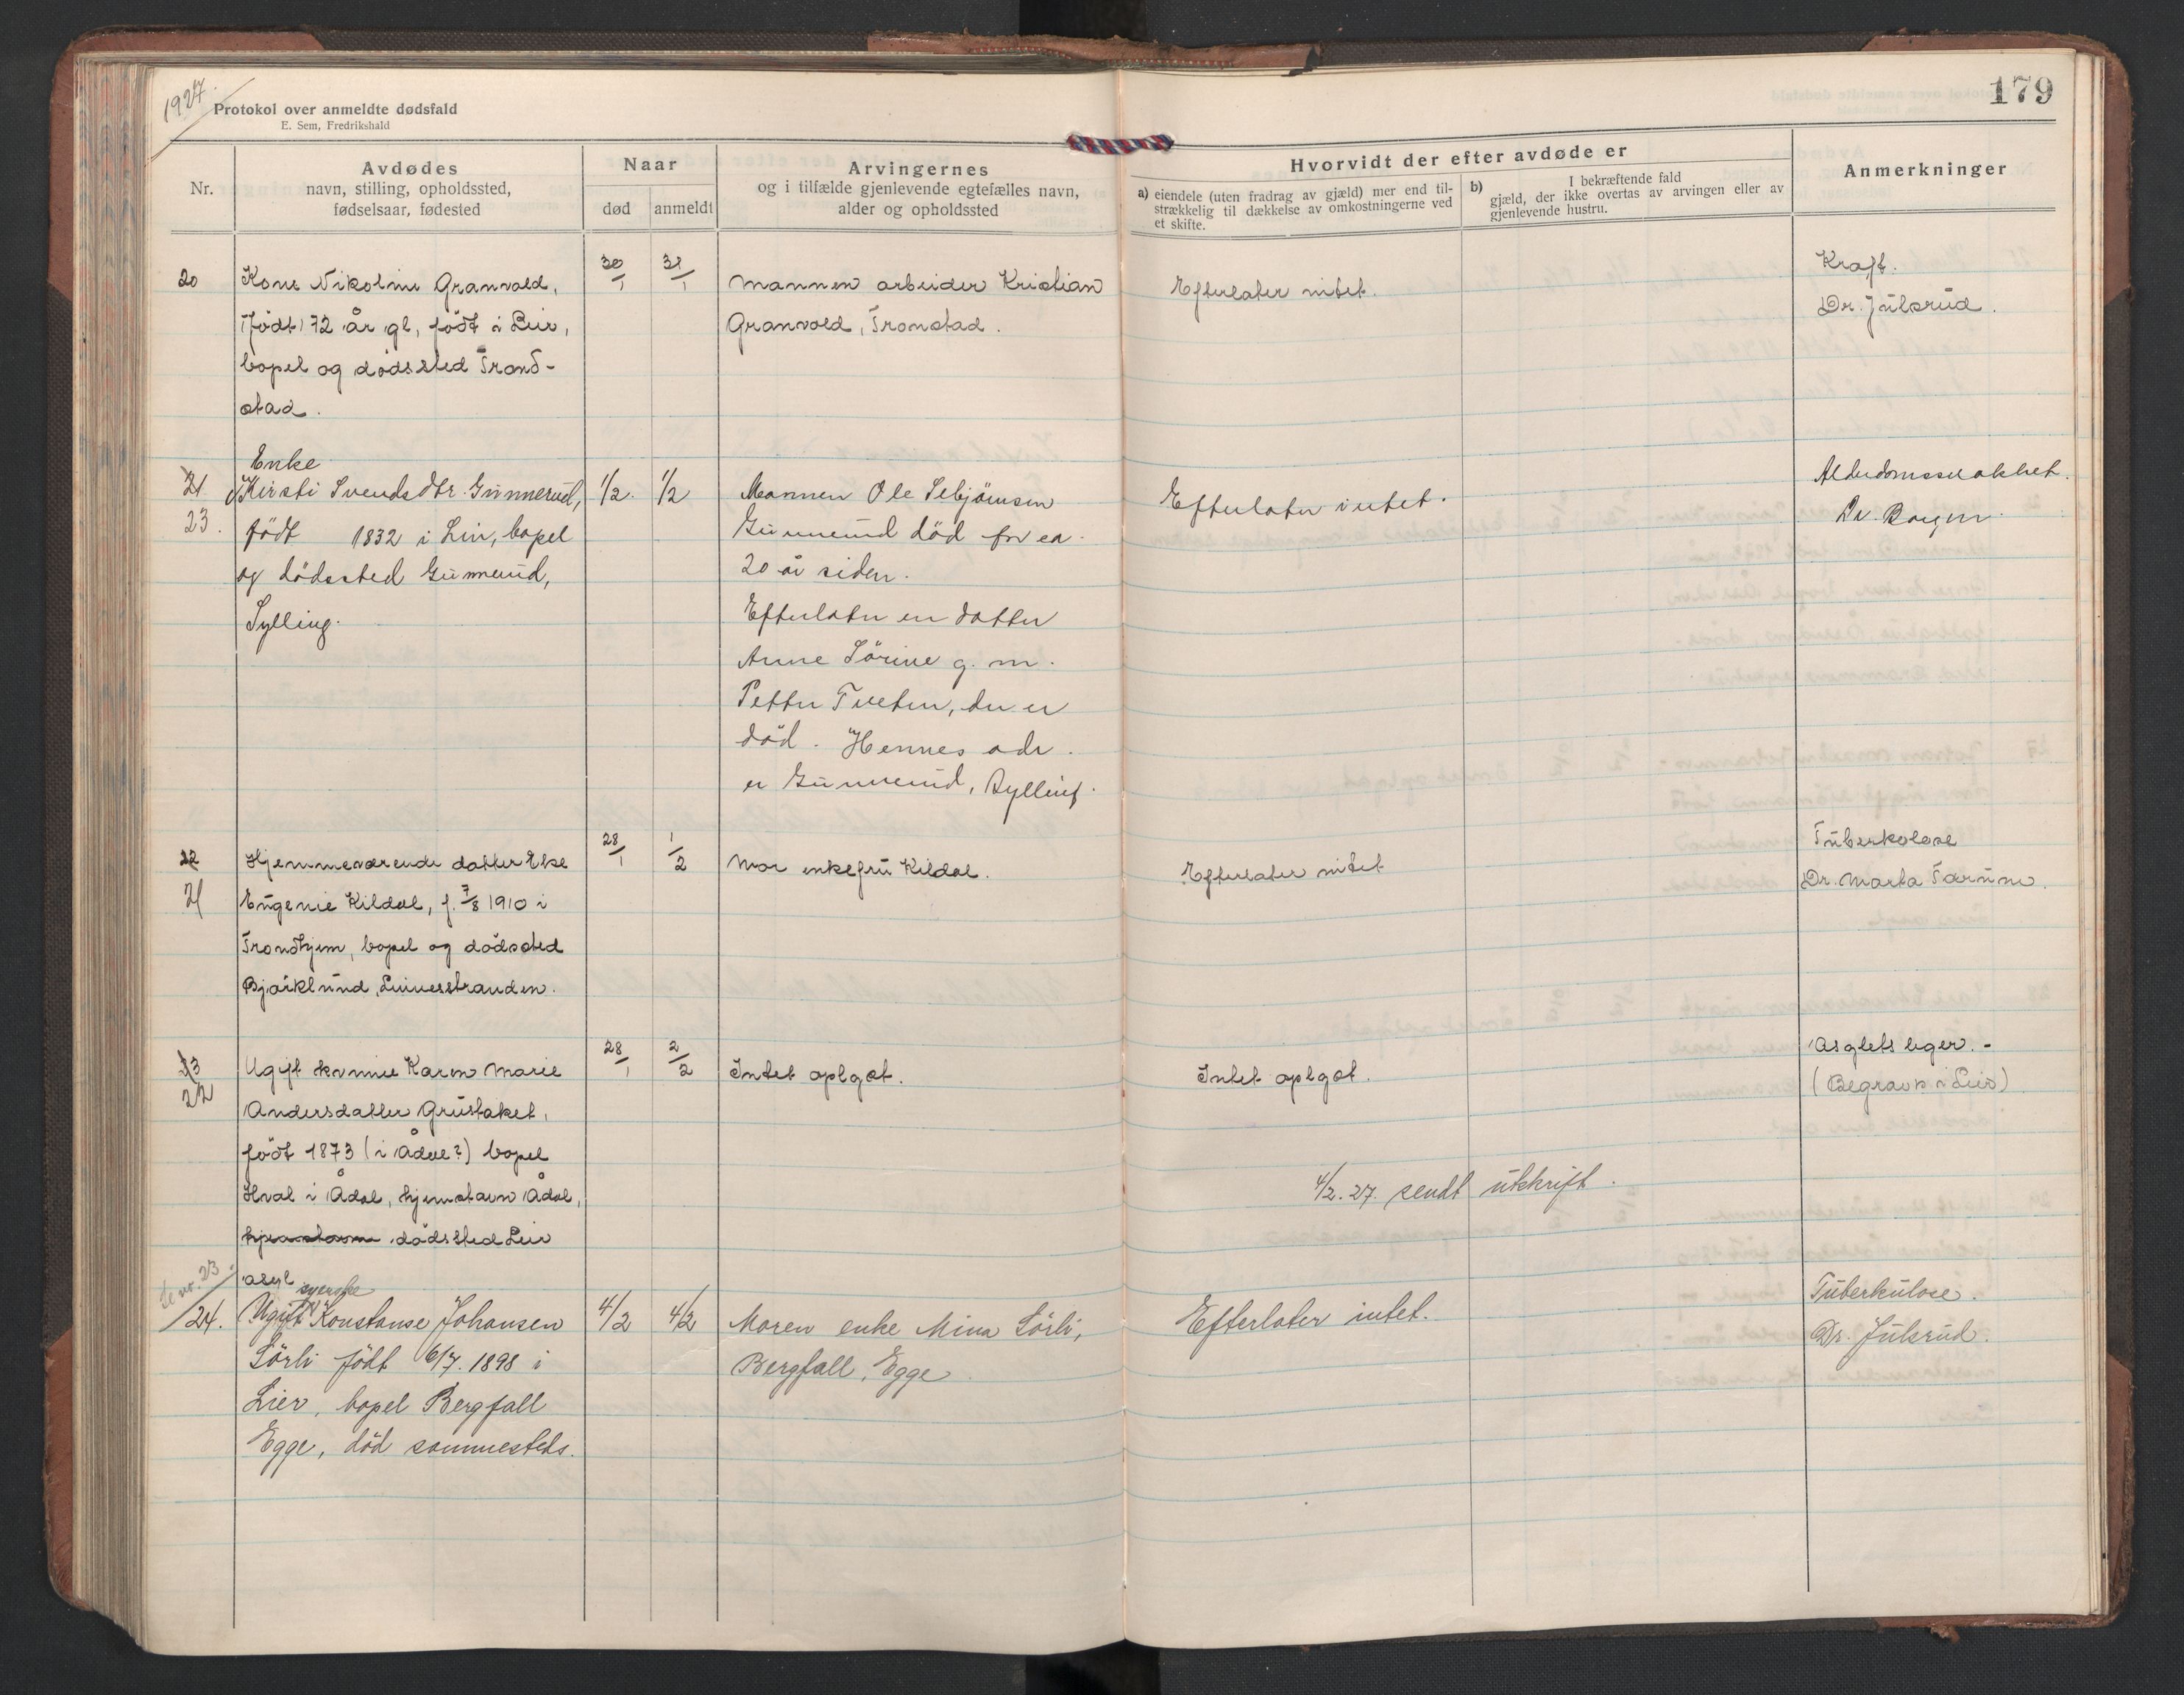 1927.
Protokol over anmeldte dødsfald
E. Sem, Fredrikshald
179
Nr.
Avdødes
navn, stilling, opholdssted,
fødselsaar, fødested
Naar
død
anmeldt
Arvingernes
og i tilfælde gjenlevende egtefælles navn,
alder og opholdssted
Hvorvidt der efter avdøde er
a) eiendele (uten fradrag av gjæld) mer end til-
strækkelig til dækkelse av omkostningerne ved
et skifte.
b) I bekræftende fald
gjæld, der ikke overtas av arvingen eller av
gjenlevende hustru.
Anmerkninger
20
Kone Nikoline Granvold,
født 72 år gl, født i Lier,
bopel og dødssted Trond-
stad.
30/1
31/1
Mannen arbeider Kristian
Granvold, Tronstad.
Efterlater intet.
Kraft.
Dr. Julsrud.
21
23.
Enke
Kirsti Svendsdtr. Gunnerud,
født 1832 i Lier, bopel
og dødssted Gunnerud,
Sylling.
1/2.
1/2
Mannen Ole Sebjørnsen
Gunnerud død for ca.
20 år siden.
Efterlater en datter
Anne Sørine g. m.
Petter Tveten, der er
død. Hennes adr.
er Gunnerud, Sylling.
Efterlater intet.
Alderdomssvakhet.
Dr. Borgen.
22
21
Hjemmeværende datter Else
Eugenie Kildal, f. 7/8 1910 i
Trondhjem, bopel og dødssted
Bjørklund, Lierstranden.
28/1
1/2
Mor enkefru Kildal.
Efterlater intet
Tuberkolose
Dr. Marta Færum.
23
22
Ugift kvinne Karen Marie
Andersdatter Grustaket,
født 1873 (i Ådal?) bopel
Hval i Ådal, hjemstavn Ådal,
hjemstavn dødssted Lier
asyl
28/1
2/2
Intet oplyst.
Intet oplyst.
Asylets leger. -
(Begrav. i Lier)
4/2. 27. sendt utskrift.
Se nr. 23.
24.
syerske
Ugift Konstanse Johansen
Sörli født 6/7. 1898 i
Lier, bopel Bergfall
Egge, død sammesteds.
4/2
4/2
Moren enke Mina Sörli,
Bergfall, Egge.
Efterlater intet.
Tuberkulose.
Dr. Julsrud.